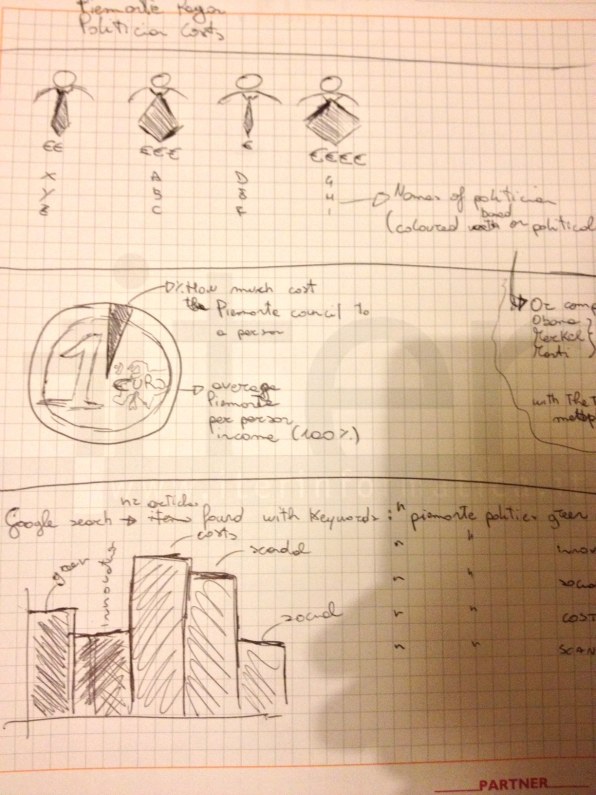 Piemonte Region
Politician Costs
€€ €€€ € €€€€
X A D G
Y B E H
Z C F I
Names of politician
(coloured based on political
% How much cost
the Piemonte council to
a person
1 EURO
average
Piemonte
per person
income (100%)
Or comp
Obama
Merkel
Monti
with the t
Google search → n° articles found with keywords: "piemonte politics green
" " innov
" " social
" " COST
" " SCAN
green
innovation
costs
scandal
social
PARTNER